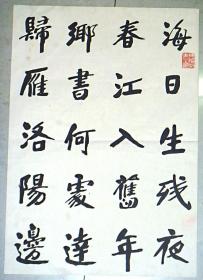 海日生残夜
春江入舊年
鄉書何處達
歸雁洛陽邊